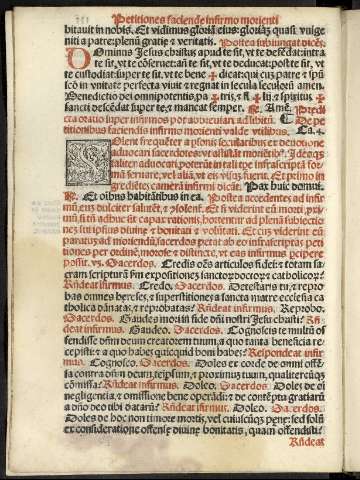 Petitiones faciende infirmo morienti
bitauit in nobis. Et vidimus gloriā eius: gloriā quasi vnige
niti a patre: plenū gratie & veritatis. Postea subiungat dicēs.
Ominus Jesus christus apud te sit, vt te defēdat: intra
te sit, vt te cōseruet: ān te sit, vt te deducat: poste sit, vt
te custodiat: super te sit, vt te bene ✠ dicat: qui cū patre & spū
scō in vnitate perfecta viuit & regnat in secula seculorū amen.
Benedictio dei omnipotentis, pa ✠ tris, & fi ✠ lij & spiritus ✠
sancti descēdat super te, & maneat semper. Amē. Predi
cta oratio super infirmos pōt abbreuiari ad libitū. De pe
titionibus faciendis infirmo morienti valde vtilibus. Ca. 4.
Solent frequēter a psonis secularibus ex deuotione
aduocari sacerdotes: vt assistāt morientibus.
Et primo in
grediēs camerā infirmi dicat. Pax huic domui.
Et oībus habitātibus in ea. Postea accedentes ad infir
mū, eum dulciter salutēt, & consolent. Et si viderint eū morti proxi
mū, si tn̄ adhuc sit capax rationis, hortentur ad plenā subiectio
nē sui ipsius diuine & bonitati & volūtati. Et cū viderint eū
paratū ad moriendū, sacerdos petat ab eo infrascriptas peti
tiones per ordinē, morose & distincte, vt eas infirmus pcipere
possit. Sacerdos. Credis oēs articulos fidei: & totam sa
cram scripturā fm expositionē sanctorū doctorū catholicorū?
Rn̄deat infirmus. Credo. Sacerdos. Detestaris tu, & repro
bas omnes hereses, & superstitiones a sancta matre ecclesia ca
tholica dānatas, & reprobatas? Rn̄deat infirmus. Reprobo.
Sacerdos. Gaudes mori in fide dn̄i nostri Jesu christi? Rn̄
deat infirmus. Gaudeo. Sacerdos. Cognoscis te multū of
fendisse dn̄m deum creatorem tuum, a quo tanta beneficia re
cepisti: & a quo habes quicquid boni habes? Respondeat infir
mus. Cognosco. Sacerdos. Doles ex corde de omni offē
sa contra dn̄m deum, teipsum, & proximus tuum, qualitercūqȝ
cōmissa? Rn̄deat infirmus. Doleo. Sacerdos. Doles de oī
negligentia, & omissione bene operādi: & de contēptu gratiarū
a dn̄o deo tibi datarū? Rn̄deat infirmus. Doleo. Sacerdos.
Doles de hoc non timore mortis, vel cuiuscūqȝ pene: sed solū
ex consideratione offense diuine bonitatis, quam offendisti?
Rn̄deat